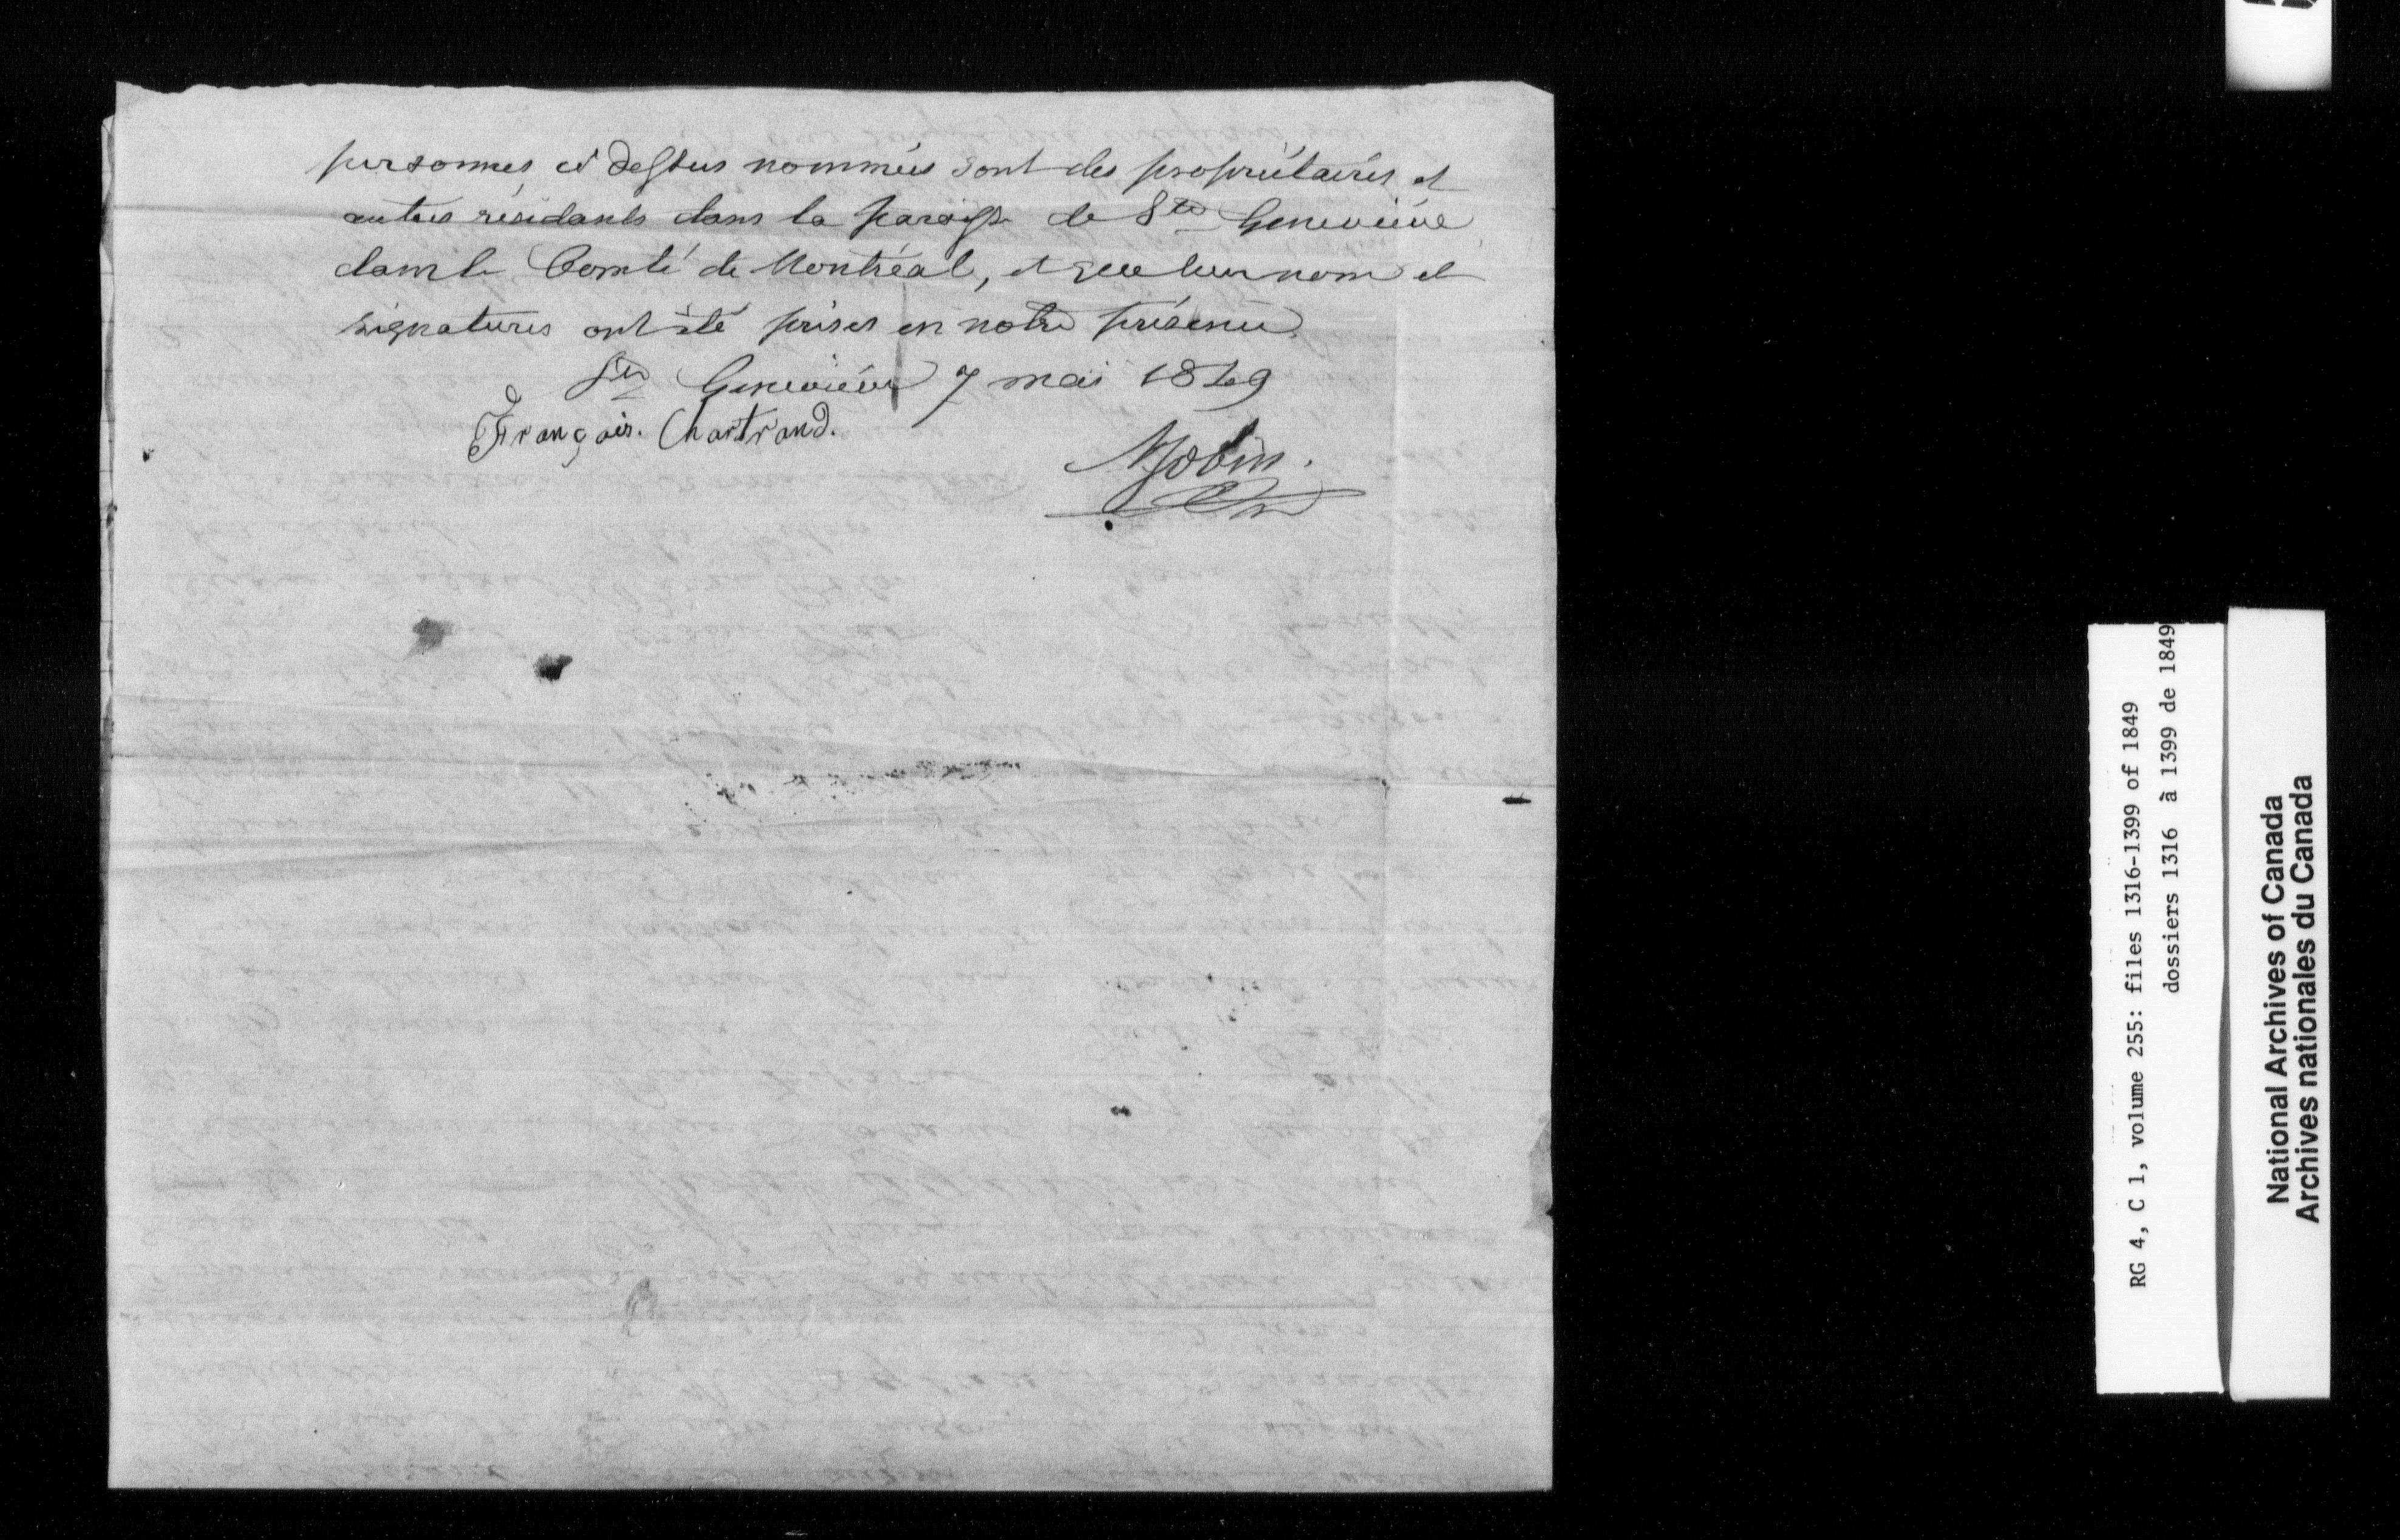 personnes ci dessus nommées sont des propriétaires et
autres résidants dans la paroisse de Ste Geneviève
dans le Comté de Montréal, et que leur nom et
signatures ont été prises en notre présence.
Ste Geneviève 7 mai 1849
François. Chartrand.
MJobin.
RG 4, C 1, volume 255: files 1316-1399 of 1849
dossiers 1316 à 1399 de 1849
National Archives of Canada
Archives nationales du Canada